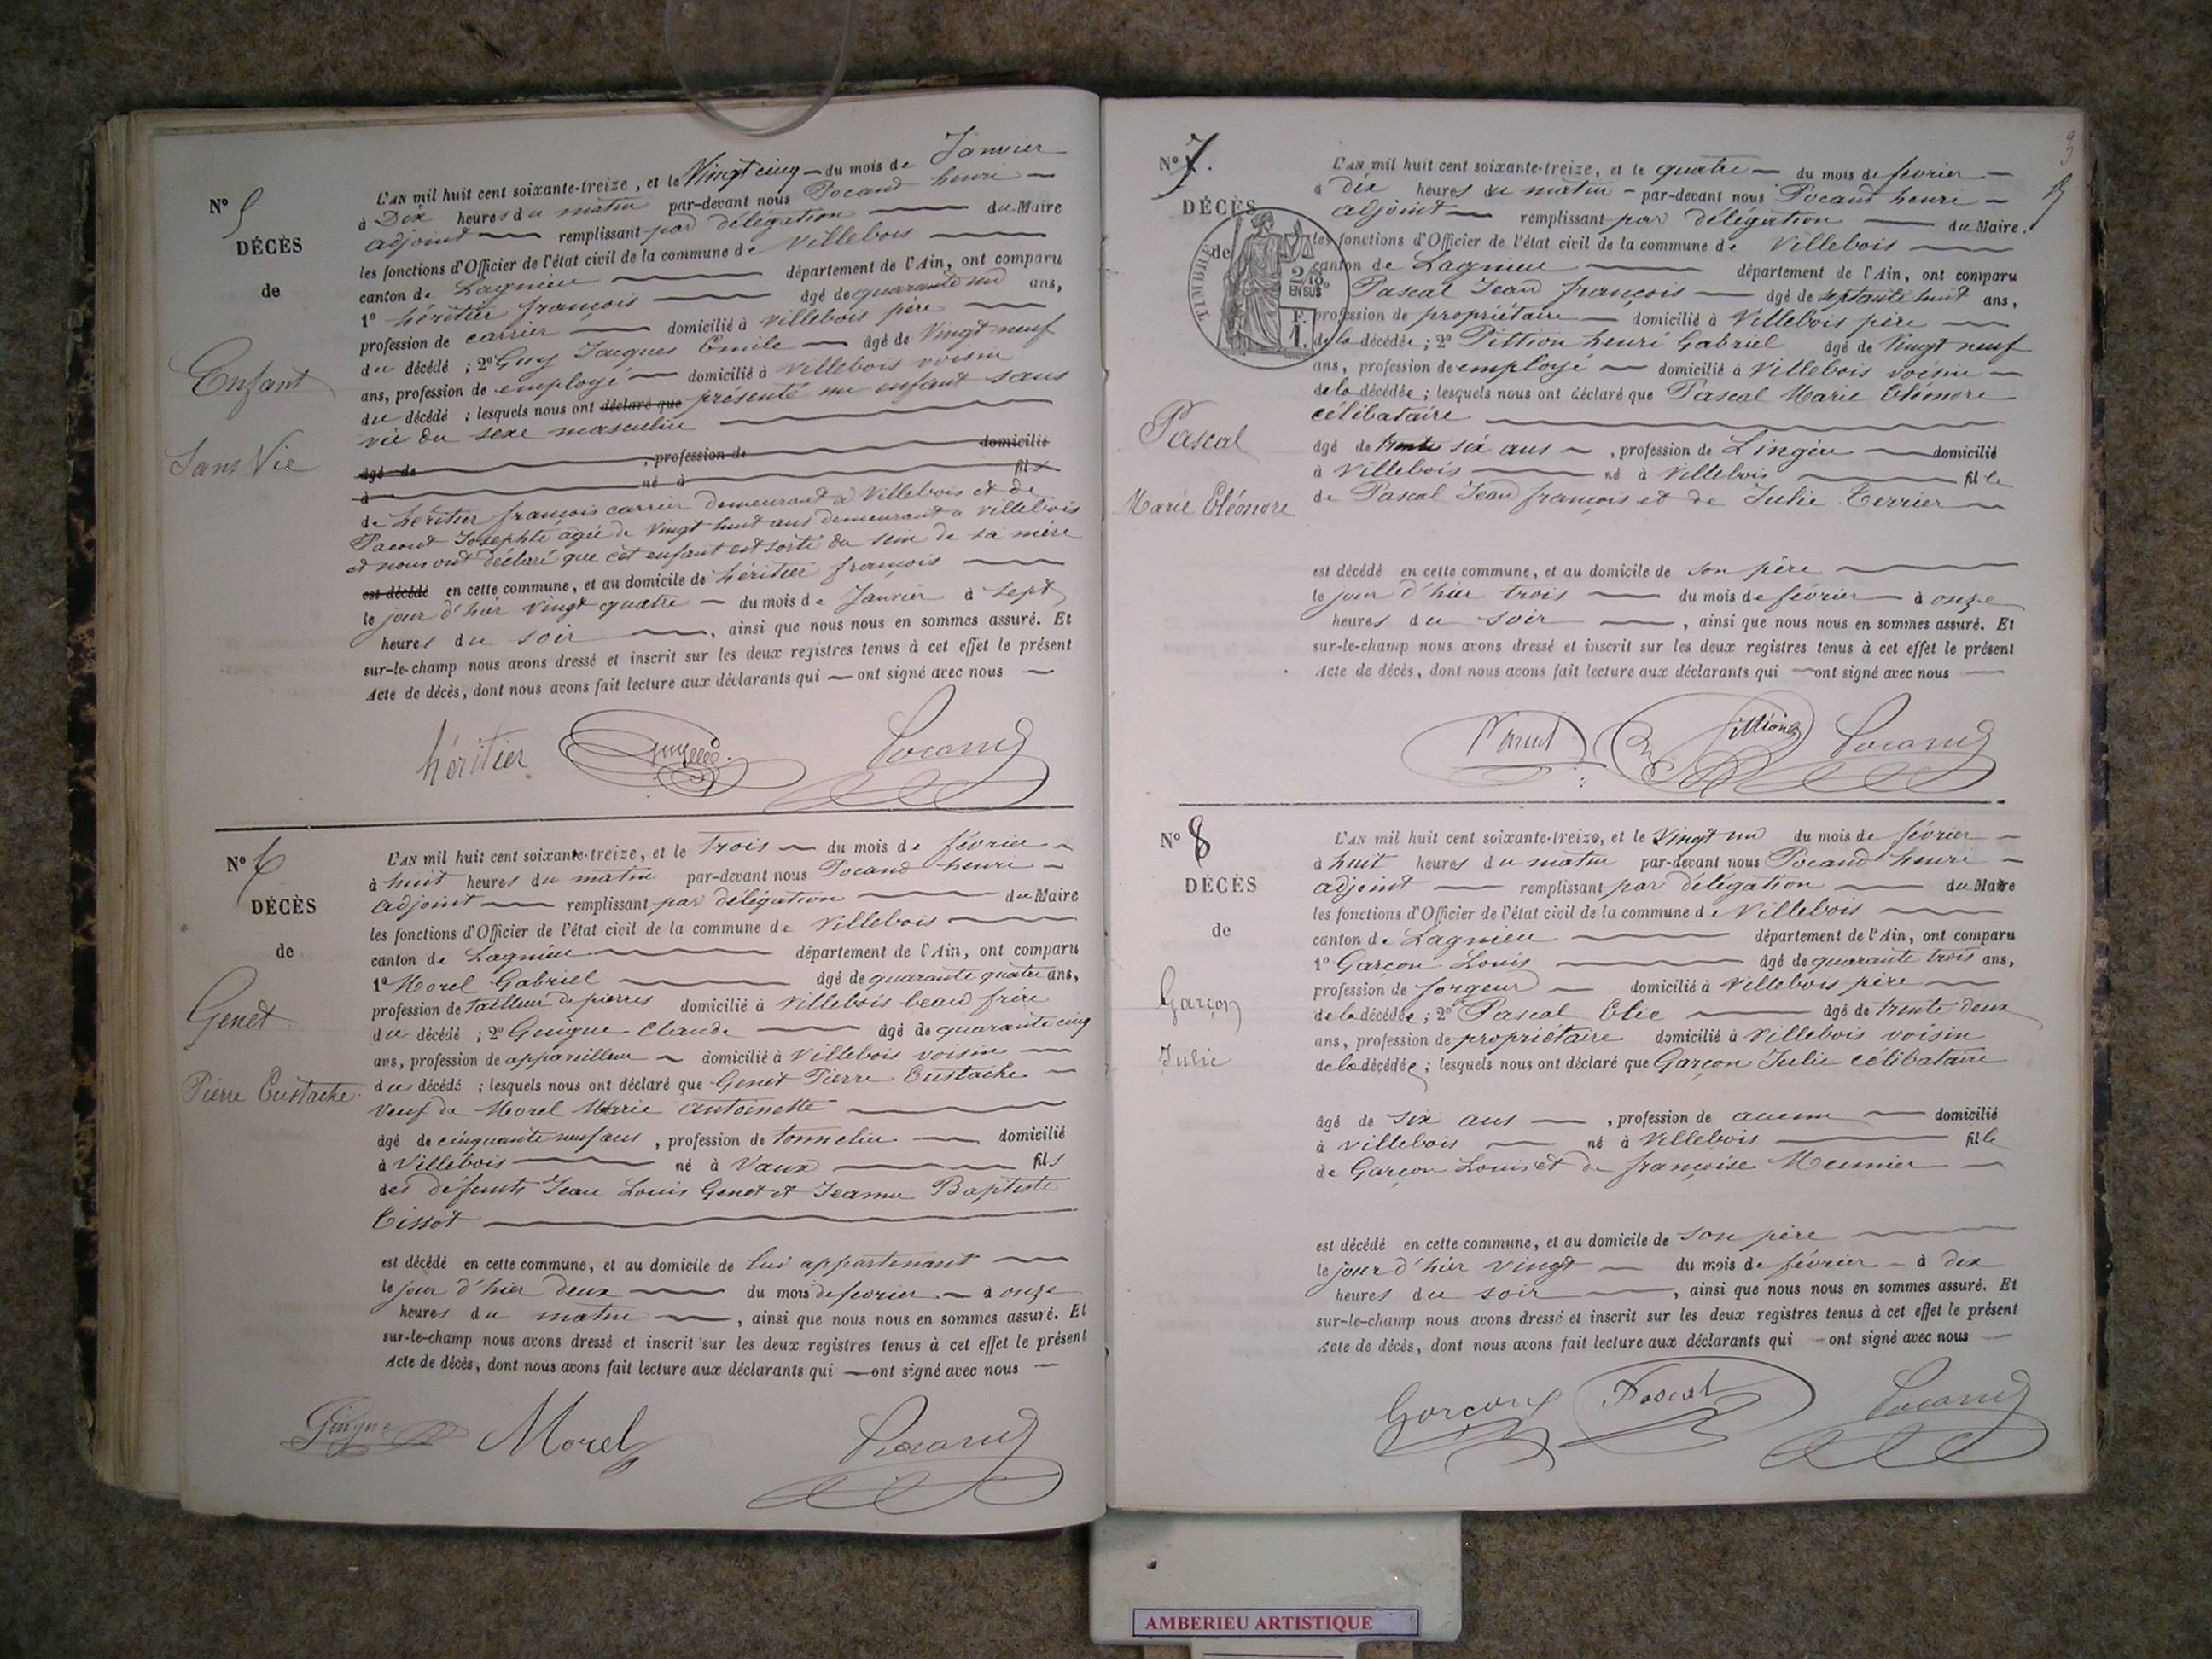 N° 5
DÉCÈS
de
Enfant
Sans Vie
L'AN mil huit cent soixante-treize, et le Vingt cinq du mois de Janvier
à Dix heures du matin par-devant nous Pocand henri
adjoint remplissant par délégation du Maire
les fonctions d'Officier de l'état civil de la commune de Villebois
canton de Lagnieu département de l'Ain, ont comparu
1° héritier françois âgé de quarante un ans,
profession de carrier domicilié à Villebois père
du décédé ; 2° Guy Jacques Emile âgé de Vingt neuf
ans, profession de employé domicilié à Villebois voisin
du décédé ; lesquels nous ont déclaré que présenté un enfant sans
vie du sexe masculin
âgé de , profession de domicilié
à né à fils
de héritier françois carrier demeurant à Villebois et de
Pacout Josephte agée de Vingt huit ans demeurant a Villebois
et nous ont déclaré que cet enfant est sorti du sein de sa mère
est décédé en cette commune, et au domicile de héritier françois
le jour d'hier Vingt quatre du mois de Janvier à Sept
heures du soir , ainsi que nous nous en sommes assuré. Et
sur-le-champ nous avons dressé et inscrit sur les deux registres tenus à cet effet le présent
Acte de décès, dont nous avons fait lecture aux déclarants qui ont signé avec nous
héritier Pocand
N° 6
DÉCÈS
de
Genet
Pierre Eustache
L'AN mil huit cent soixante-treize, et le Trois du mois de février
à huit heures du matin par-devant nous Pocand henri
adjoint remplissant par délégation du Maire
les fonctions d'Officier de l'état civil de la commune de Villebois
canton de Lagnieu département de l'Ain, ont comparu
1° Morel Gabriel âgé de quarante quatre ans,
profession de tailleur de pierres domicilié à Villebois beau frère
du décédé ; 2° Guigue Claude âgé de quarante cinq
ans, profession de appareilleur domicilié à Villebois voisin
du décédé ; lesquels nous ont déclaré que Genet Pierre Eustache
Veuf de Morel Marie Antoinette
âgé de cinquante neuf ans , profession de tonnelier domicilié
à Villebois né à Vaux fils
des défunts Jean Louis Genet et Jeanne Baptiste
Tissot
est décédé en cette commune, et au domicile de lui appartenant
le jour d'hier deux du mois de fevrier à onze
heures du matin , ainsi que nous nous en sommes assuré. Et
sur-le-champ nous avons dressé et inscrit sur les deux registres tenus à cet effet le présent
Acte de décès, dont nous avons fait lecture aux déclarants qui ont signé avec nous
Guigue Morel Pocand
3
N° 7.
DÉCÈS
de
TIMBRE
2/10e
EN SUS
F.
1.
Pascal
Marie Eléonore
L'AN mil huit cent soixante-treize, et le quatre du mois de février
à dix heures du matin par-devant nous Pocand henri
adjoint remplissant par délégation du Maire.
les fonctions d'Officier de l'état civil de la commune de Villebois
canton de Lagnieu département de l'Ain, ont comparu
Pascal Jean françois âgé de septante huit ans,
profession de propriétaire domicilié à Villebois père
de la décédée ; 2° Pittion henri Gabriel âgé de Vingt neuf
ans, profession de employé domicilié à Villebois voisin
de la décédée ; lesquels nous ont déclaré que Pascal Marie Eléonore
célibataire
âgé de trente six ans , profession de Lingère domicilié
à Villebois né à Villebois fille
de Pascal Jean françois et de Julie Terrier
est décédé en cette commune, et au domicile de son père
le jour d'hier trois du mois de février à onze
heures du soir , ainsi que nous nous en sommes assuré. Et
sur-le-champ nous avons dressé et inscrit sur les deux registres tenus à cet effet le présent
Acte de décès, dont nous avons fait lecture aux déclarants qui ont signé avec nous
Pascal Pittion Pocand
N° 8
DÉCÈS
de
Garçon
Julie
L'AN mil huit cent soixante-treize, et le Vingt un du mois de février
à huit heures du matin par-devant nous Pocand henri
adjoint remplissant par délégation du Maire
les fonctions d'Officier de l'état civil de la commune de Villebois
canton de Lagnieu département de l'Ain, ont comparu
1° Garçon Louis âgé de quarante trois ans,
profession de forgeur domicilié à Villebois père
de la décédée ; 2° Pascal Elie âgé de trente deux
ans, profession de propriétaire domicilié à Villebois voisin
de la décédée ; lesquels nous ont déclaré que Garçon Julie célibataire
âgé de six ans , profession de aucune domicilié
à Villebois né à Villebois fille
de Garçon Louis et de françoise Meunier
est décédé en cette commune, et au domicile de son père
le jour d'hier vingt du mois de février à dix
heures du soir , ainsi que nous nous en sommes assuré. Et
sur-le-champ nous avons dressé et inscrit sur les deux registres tenus à cet effet le présent
Acte de décès, dont nous avons fait lecture aux déclarants qui ont signé avec nous
Garçon Pascal Pocand
AMBERIEU ARTISTIQUE